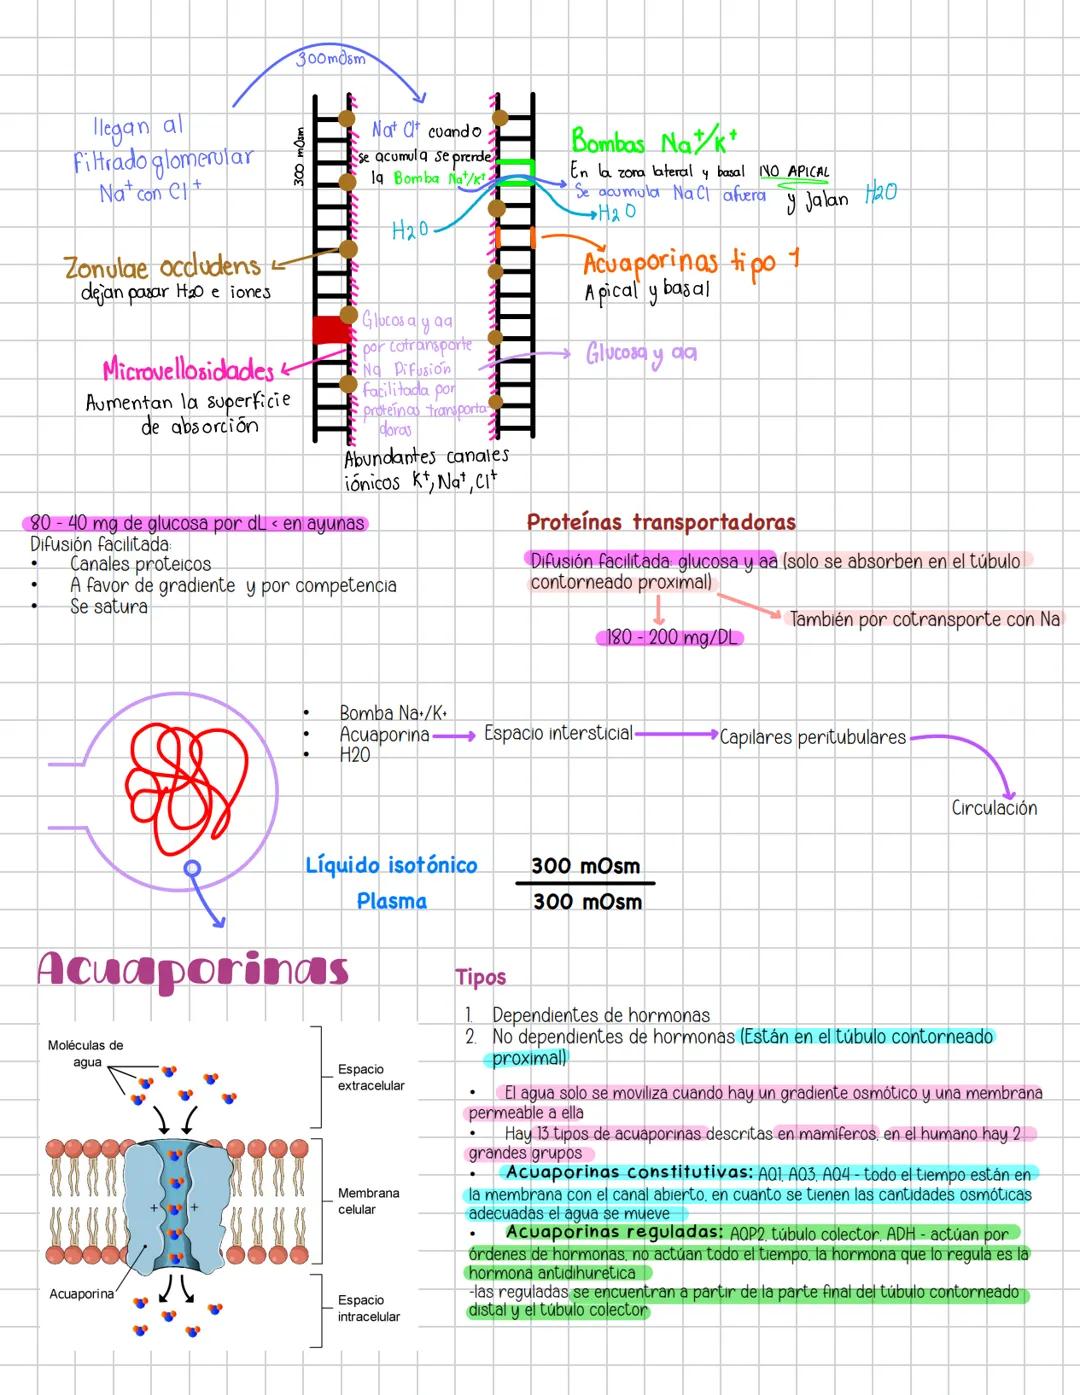 300mOsm
llegan al
filtrado glomerular
Na+ con Cl+
300 mOsm
Na+ Cl+ cuando
se acumula se prende
la Bomba Na+/K+
H2O
Bombas Na+/K+
En la zona lateral y basal NO APICAL
Se acumula NaCl afuera y jalan H2O
H2O
Zonulae occludens
dejan pasar H2O e iones
Acuaporinas tipo 1
Apical y basal
Microvellosidades
Aumentan la superficie
de absorción
Glucosa y aa
por cotransporte
Na Difusión
facilitada por
proteínas transporta
doras
Glucosa y aa
Abundantes canales
iónicos K+, Na+, Cl+
80 - 40 mg de glucosa por dL < en ayunas
Difusión facilitada:
• Canales proteicos
• A favor de gradiente y por competencia
• Se satura
Proteínas transportadoras
Difusión facilitada: glucosa y aa (solo se absorben en el túbulo
contorneado proximal)
También por cotransporte con Na
180 - 200 mg/DL
• Bomba Na+/K+
• Acuaporina
• H2O
Espacio intersticial
Capilares peritubulares
Circulación
Líquido isotónico 300 mOsm
Plasma 300 mOsm
Acuaporinas
Moléculas de
agua
Espacio
extracelular
Membrana
celular
Acuaporina
Espacio
intracelular
+ +
Tipos
1. Dependientes de hormonas
2. No dependientes de hormonas (Están en el túbulo contorneado
proximal)
• El agua solo se moviliza cuando hay un gradiente osmótico y una membrana
permeable a ella
• Hay 13 tipos de acuaporinas descritas en mamíferos, en el humano hay 2
grandes grupos
• Acuaporinas constitutivas: AQ1, AQ3, AQ4 - todo el tiempo están en
la membrana con el canal abierto, en cuanto se tienen las cantidades osmóticas
adecuadas el agua se mueve
• Acuaporinas reguladas: AQP2, túbulo colector, ADH - actúan por
órdenes de hormonas, no actúan todo el tiempo, la hormona que lo regula es la
hormona antidihuretica
-las reguladas se encuentran a partir de la parte final del túbulo contorneado
distal y el túbulo colector